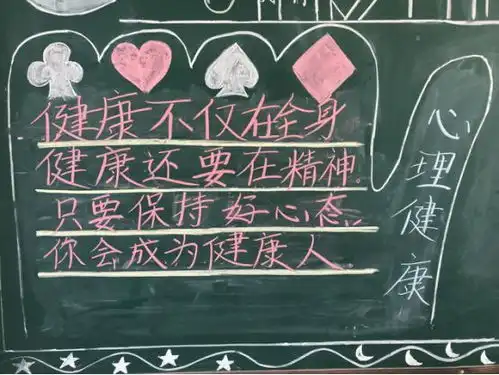 健康不仅在全身
健康还要在精神
只要保持好心态
你会成为健康人
心理健康